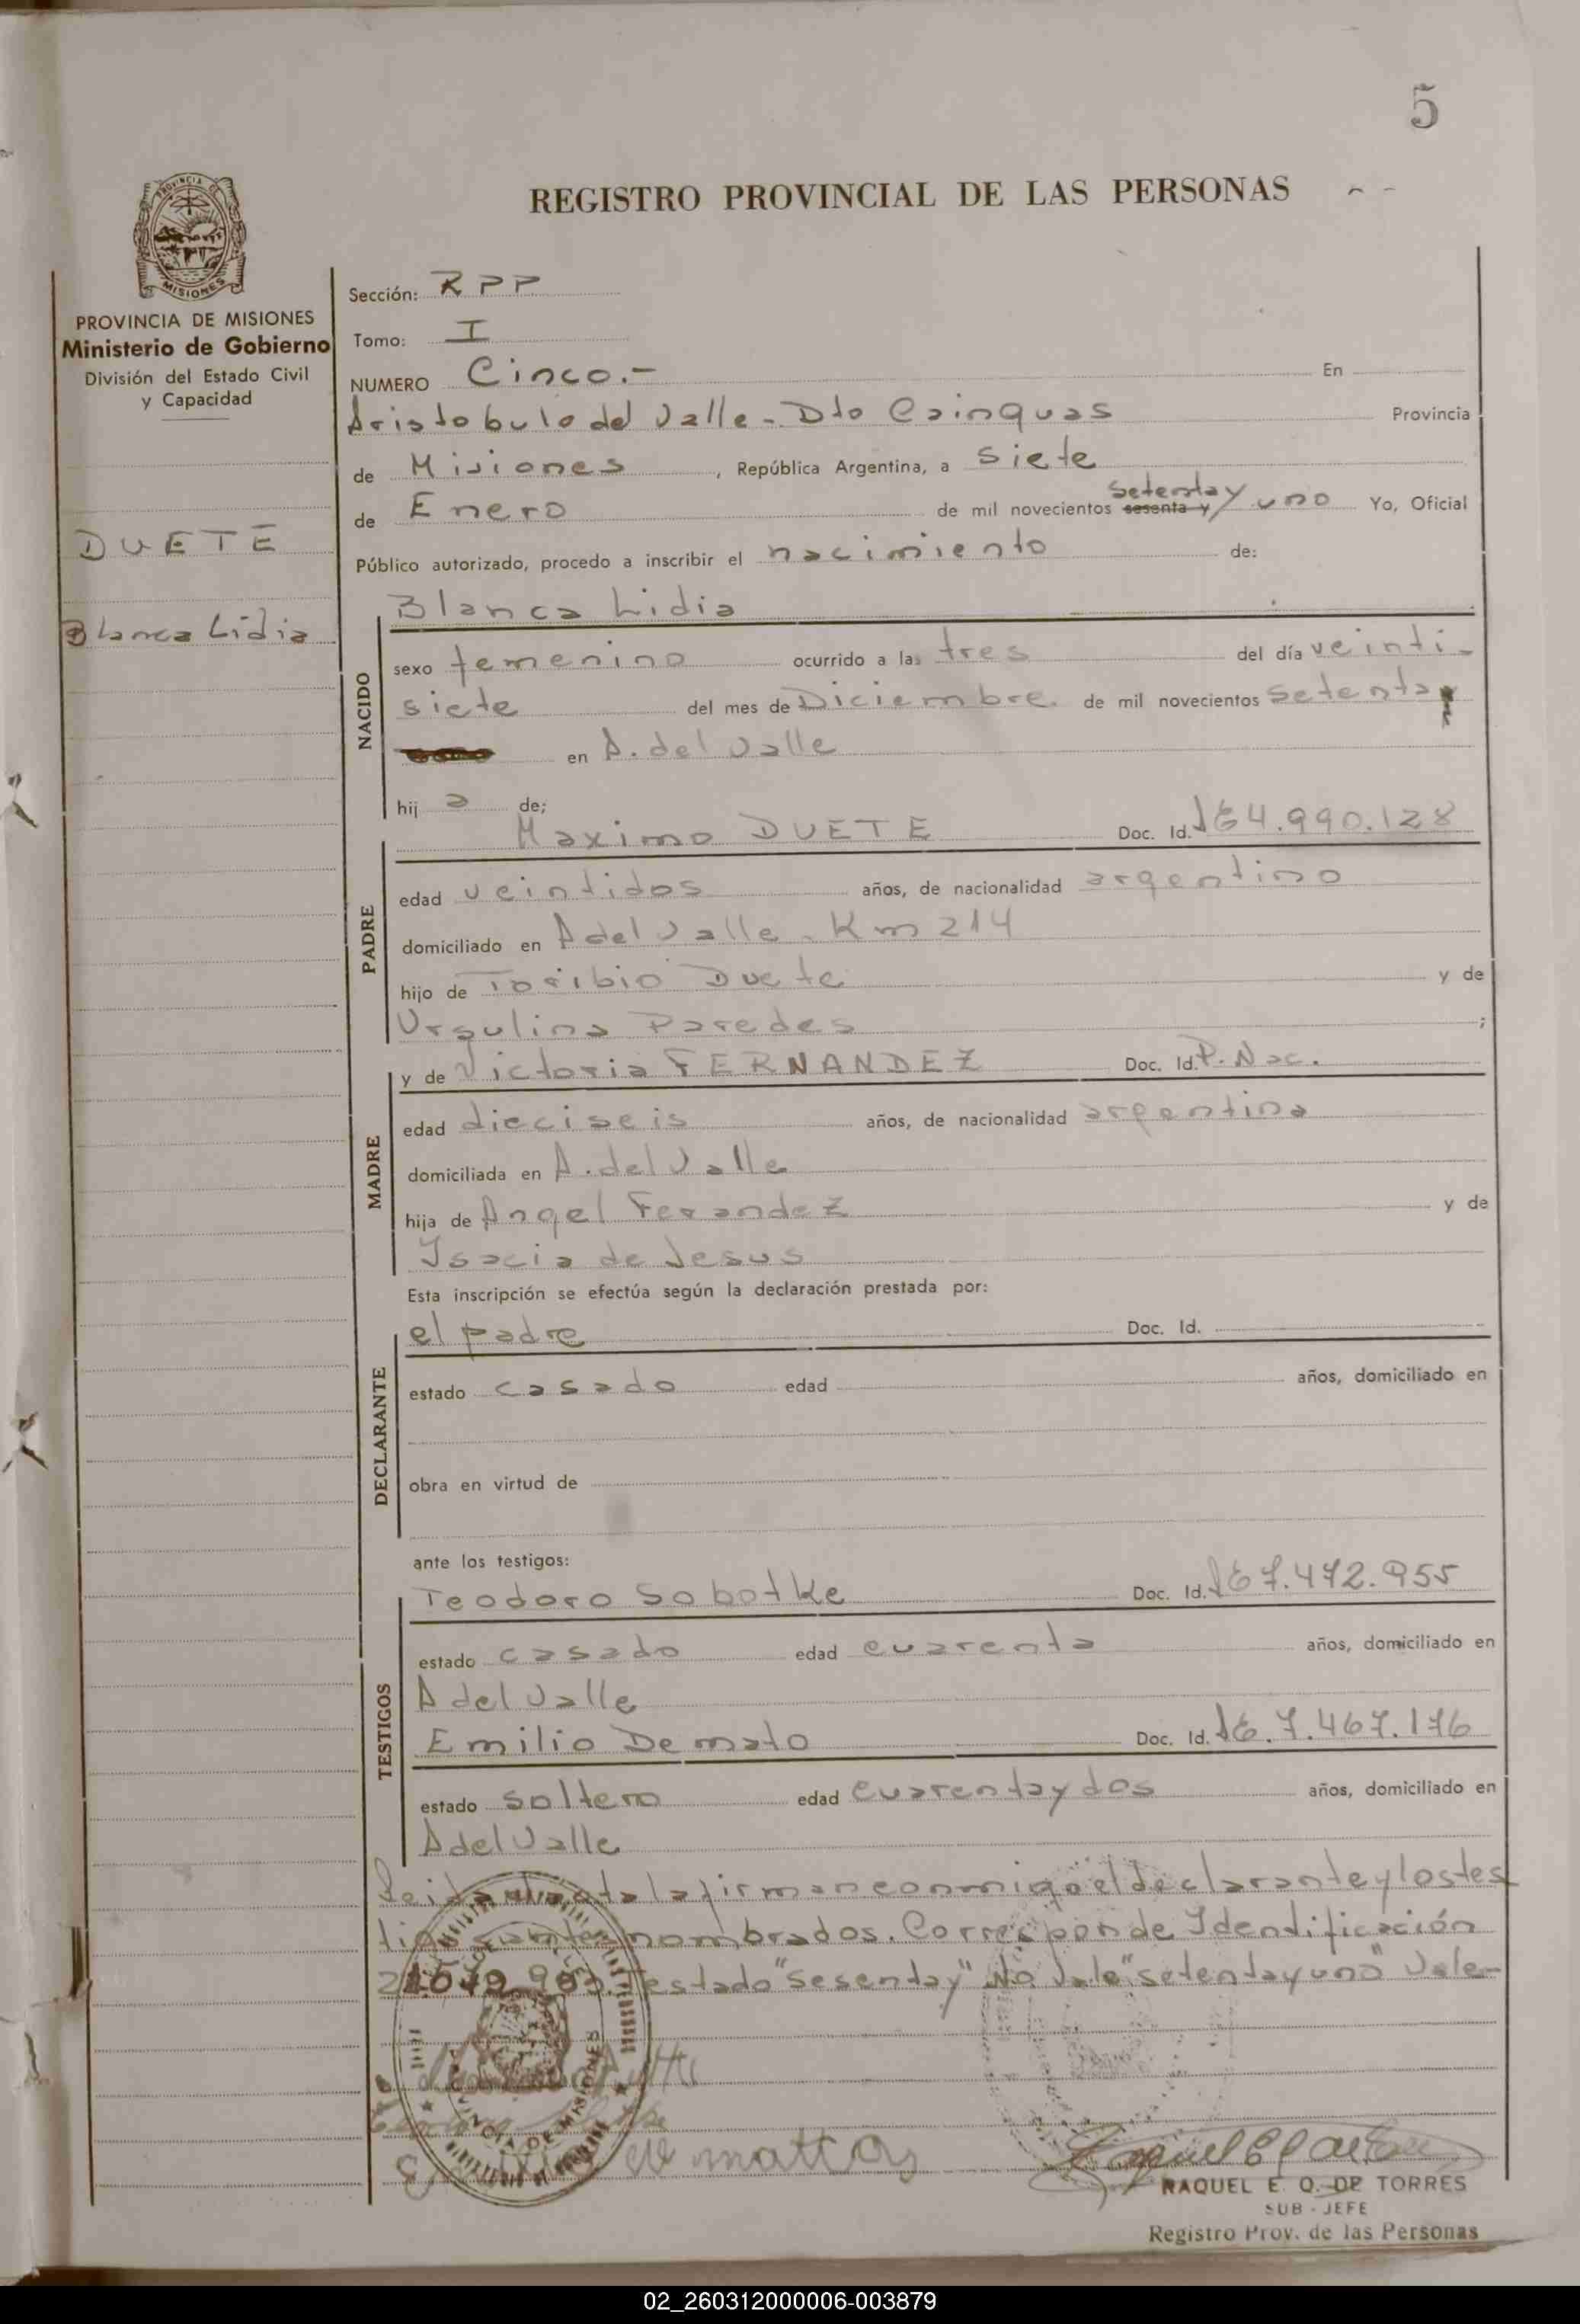 5
REGISTRO PROVINCIAL DE LAS PERSONAS
PROVINCIA DE MISIONES
Ministerio de Gobierno
División del Estado Civil
y Capacidad
DUETE
Blanca Lidia
Sección: RPP
Tomo: I
NUMERO Cinco.- En
Aristobulo del Valle - Dto Cainguas Provincia
de Misiones, República Argentina, a siete
de Enero de mil novecientos sesenta y setenta y uno Yo, Oficial
Público autorizado, procedo a inscribir el nacimiento de:
NACIDO
Blanca Lidia
sexo femenino ocurrido a las tres del día veinti-
siete del mes de Diciembre de mil novecientos setenta
en A. del Valle
hij a de;
PADRE
Maximo DUETE Doc. Id. LE 4.990.128
edad veintidos años, de nacionalidad argentino
domiciliado en A del Valle - Km 214
hijo de Toribio Duete y de
Ursulina Paredes ;
MADRE
y de Victoria FERNANDEZ Doc. Id. P. Nac.
edad dieciseis años, de nacionalidad argentina
domiciliada en A. del Valle
hija de Angel Ferandez y de
Isacia de Jesus
Esta inscripción se efectúa según la declaración prestada por:
DECLARANTE
el padre Doc. Id.
estado casado edad años, domiciliado en
obra en virtud de
ante los testigos:
TESTIGOS
Teodoro Sobotke Doc. Id. LE 7.472.955
estado casado edad cuarenta años, domiciliado en
A del Valle
Emilio De mato Doc. Id. LE. 7.467.176
estado soltero edad cuarenta y dos años, domiciliado en
A del Valle
Leida el acta la firman conmigo el declarante y los tes
tigos antes nombrados. Corresponde Identificación
Testado "sesenta y" No Vale "setenta y uno" Vale-
de mattos
RAQUEL E. Q. DE TORRES
SUB - JEFE
Registro Prov. de las Personas
02_260312000006-003879